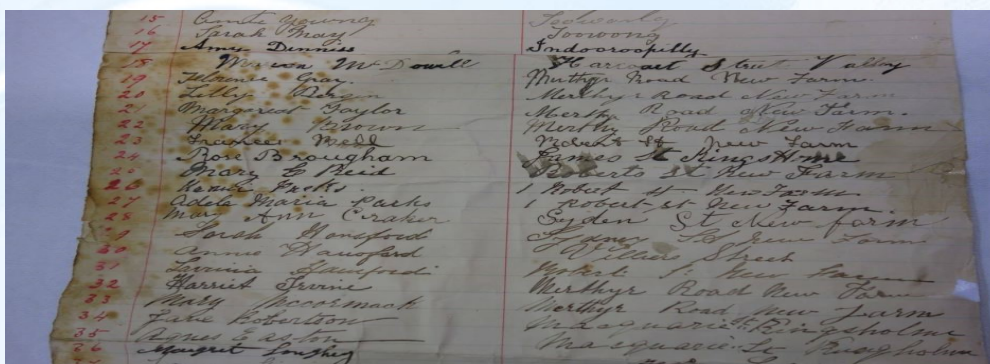 15 Annie Toowong
16 Sarah May Toowong
17 Amy Denniss Indooroopilly
18 McDowall Harcourt Street Valley
19 Florence Gray. Merthyr Road New Farm.
20 Lilly Merthyr Road New Farm
21 Margaret Taylor Merthy Road New Farm.
22 Mary Brown Merthy Road New Farm
23 Frances Bell Robert St New Farm
24 Rose Brougham James St Kings Hme
25 Mary E Reid Roberts St New Farm
26 1 Robert st New Farm.
27 Adela Maria Parks 1 Robert st New Farm.
28 Mary Ann Craker Syden St New farm
29 Sarah Hansford St New Farm
30 Annie Hansford Villiers Street
31 Lavinia Hansford Robert St New Farm
32 Harriet Irvine Merthyr Road New Farm
33 Mary McCormack Merthyr Road New Farm
34 Robertson Macquarie St Kingsholme
35 Agnes Easton Macquarie St Kingsholm
36 Margret